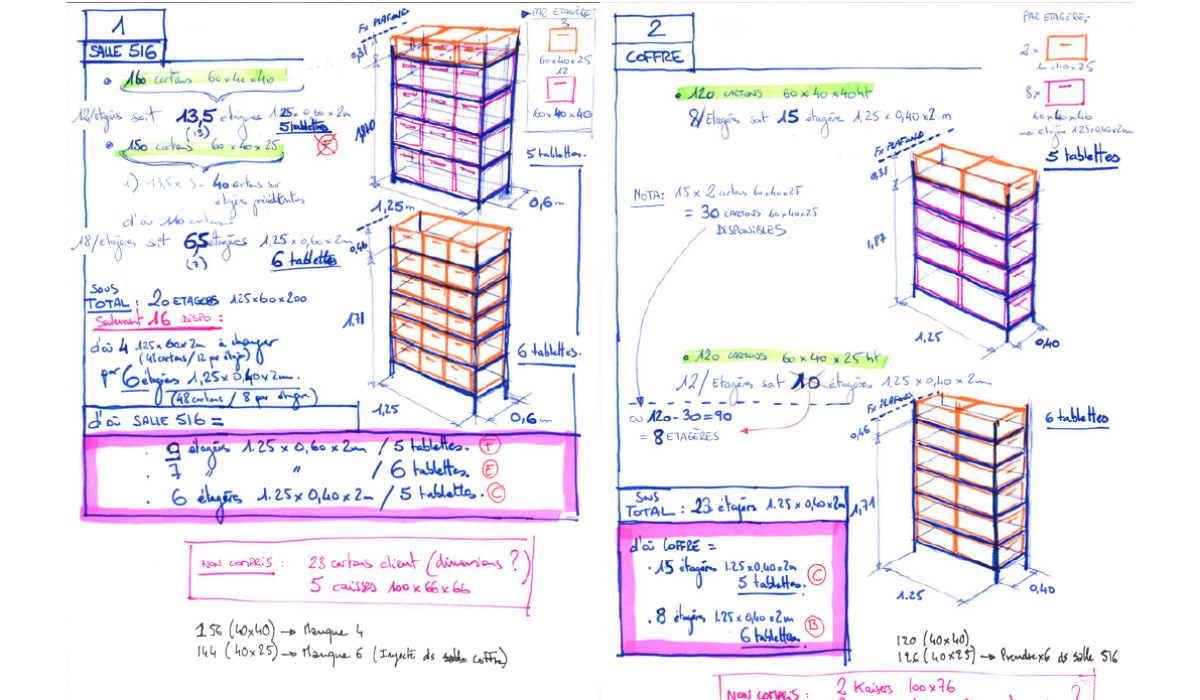 1
SALLE 516
160 cartons 60x40x40
12/étagères soit 13,5 étagères 1.25x0,60x2m
5 tablettes
F
150 cartons 60x40x25
40 cartons sur
étagères précédentes
d'où 110 cartons
18/étagères soit 6,5 étagères 1.25x0,60x2m
(7)
6 tablettes
SOUS
TOTAL : 20 ETAGERES 125x60x200
Seulement 16 DISPO :
d'où 4 125x60x2m à changer
(48 cartons / 12 par étagère)
par 6 étagères 1,25x0,40x2m.
(48 cartons / 8 par étagère)
d'où SALLE 516 =
9 étagères 1.25x0,60x2m / 5 tablettes. F
7 " " / 6 tablettes. E
6 étagères 1.25x0,40x2m / 5 tablettes. C
NON COMPRIS : 23 cartons client (dimensions ?)
5 caisses 100x66x66
156 (40x40) → Manque 4
144 (40x25) → Manque 6 (Injecte ds salle coffre)
PAR ETAGÈRE:
3
60x40x25
12
60x40x40
Fx PLAFOND
0,31
5 tablettes.
1,25m
0,6m
0,46
1.71
6 tablettes.
1,25
0,6m
2
COFFRE
120 CARTONS 60x40x40ht
8/Etagère soit 15 étagères 1.25x0,40x2.m
NOTA: 15x2 cartons 60x40x25
= 30 CARTONS 60x40x25
DISPONIBLES
120 CARTONS 60x40x25ht
12/Etagères soit 10 étagères 1.25x0,40x2m
ou 120-30=90
= 8 ETAGÈRES
SOUS
TOTAL : 23 étagères 1.25x0,40x2m
d'où COFFRE =
15 étagères 1.25x0,40x2m
5 tablettes. C
8 étagères 1.25x0,40x2m
6 tablettes. B
PAR ETAGÈRE:
2x
8x
60x40x40
→ étagère 125x0,40x2m
5 tablettes
Fx PLAFOND
0,31
1,87
1,25
0,40
Fx PLAFOND
0,46
6 tablettes
1,71
1.25
0,40
120 (40x40)
126 (40x25) → Prendre x6 ds salle 516
NON COMPRIS : 2 Kaisers 100x76